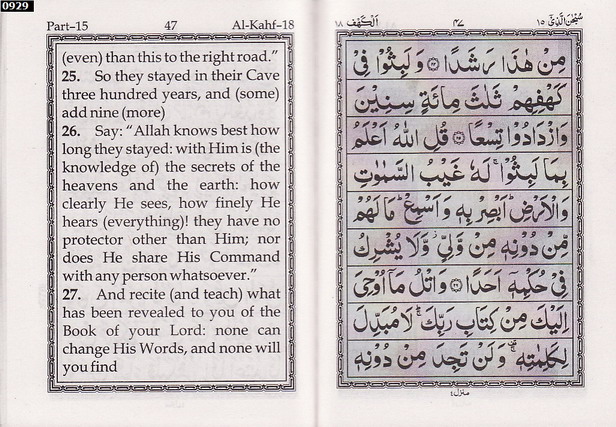 0929
Part-15 47 Al-Kahf-18
(even) than this to the right road."
25. So they stayed in their Cave
three hundred years, and (some)
add nine (more)
26. Say: "Allah knows best how
long they stayed: with Him is (the
knowledge of) the secrets of the
heavens and the earth: how
clearly He sees, how finely He
hears (everything)! they have no
protector other than Him; nor
does He share His Command
with any person whatsoever."
27. And recite (and teach) what
has been revealed to you of the
Book of your Lord: none can
change His Words, and none will
you find
سُبْحٰنَ الَّذِیْۤ ١٥ ٤٧ اَلْكَهْف ١٨
مِنْ هٰذَا رَشَدًا ۝٢٤ وَلَبِثُوْا فِیْ
كَهْفِهِمْ ثَلٰثَ مِائَةٍ سِنِیْنَ
وَازْدَادُوْا تِسْعًا ۝٢٥ قُلِ اللّٰهُ اَعْلَمُ
بِمَا لَبِثُوْا ۚ لَهٗ غَیْبُ السَّمٰوٰتِ
وَالْاَرْضِ ؕ اَبْصِرْ بِهٖ وَاَسْمِعْ ؕ مَا لَهُمْ
مِّنْ دُوْنِهٖ مِنْ وَّلِیٍّ ۫ وَّلَا یُشْرِكُ
فِیْ حُكْمِهٖۤ اَحَدًا ۝٢٦ وَاتْلُ مَاۤ اُوْحِیَ
اِلَیْكَ مِنْ كِتَابِ رَبِّكَ ۚ لَا مُبَدِّلَ
لِكَلِمٰتِهٖ ۫ وَلَنْ تَجِدَ مِنْ دُوْنِهٖ
منزل ٤